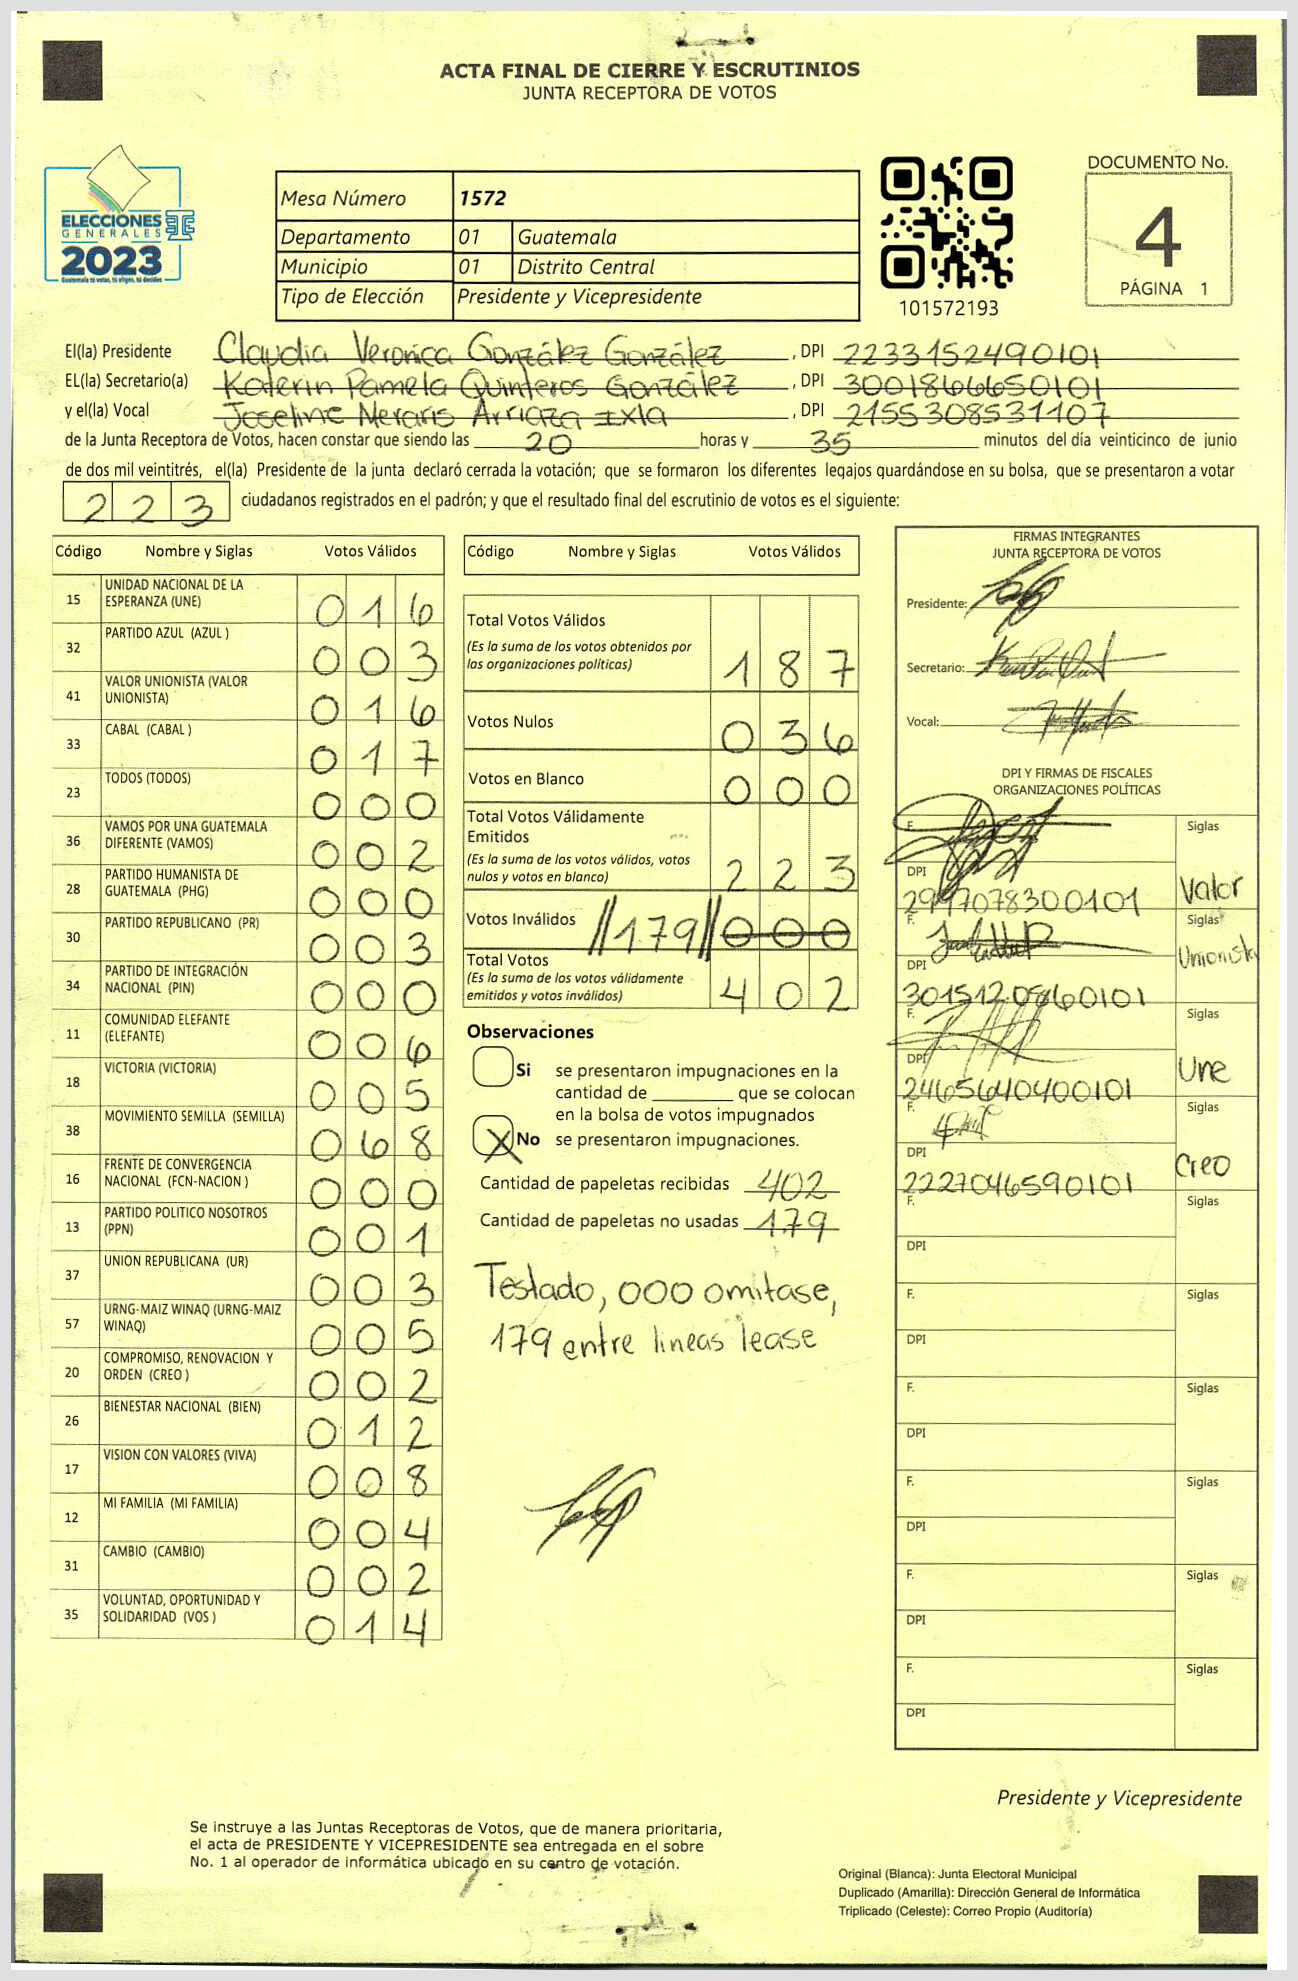 ACTA FINAL DE CIERRE Y ESCRUTINIOS
JUNTA RECEPTORA DE VOTOS
ELECCIONES
GENERALES
2023
Guatemala tú votas, tú eliges, tú decides
Mesa Número 1572
Departamento 01 Guatemala
Municipio 01 Distrito Central
Tipo de Elección Presidente y Vicepresidente
101572193
DOCUMENTO No.
4
PÁGINA 1
El(la) Presidente Claudia Veronica González González , DPI 2233152490101
EL(la) Secretario(a) Katerin Pamela Quinteros González , DPI 3001866650101
y el(la) Vocal Joseline Neraris Arriaza Ixla , DPI 2155308531107
de la Junta Receptora de Votos, hacen constar que siendo las 20 horas y 35 minutos del día veinticinco de junio
de dos mil veintitrés, el(la) Presidente de la junta declaró cerrada la votación; que se formaron los diferentes legajos guardándose en su bolsa, que se presentaron a votar
223 ciudadanos registrados en el padrón; y que el resultado final del escrutinio de votos es el siguiente:
Código Nombre y Siglas Votos Válidos
15 UNIDAD NACIONAL DE LA ESPERANZA (UNE) 016
32 PARTIDO AZUL (AZUL ) 003
41 VALOR UNIONISTA (VALOR UNIONISTA) 016
33 CABAL (CABAL ) 017
23 TODOS (TODOS) 000
36 VAMOS POR UNA GUATEMALA DIFERENTE (VAMOS) 002
28 PARTIDO HUMANISTA DE GUATEMALA (PHG) 000
30 PARTIDO REPUBLICANO (PR) 003
34 PARTIDO DE INTEGRACIÓN NACIONAL (PIN) 000
11 COMUNIDAD ELEFANTE (ELEFANTE) 006
18 VICTORIA (VICTORIA) 005
38 MOVIMIENTO SEMILLA (SEMILLA) 068
16 FRENTE DE CONVERGENCIA NACIONAL (FCN-NACION ) 000
13 PARTIDO POLITICO NOSOTROS (PPN) 001
37 UNION REPUBLICANA (UR) 003
57 URNG-MAIZ WINAQ (URNG-MAIZ WINAQ) 005
20 COMPROMISO, RENOVACION Y ORDEN (CREO ) 002
26 BIENESTAR NACIONAL (BIEN) 012
17 VISION CON VALORES (VIVA) 008
12 MI FAMILIA (MI FAMILIA) 004
31 CAMBIO (CAMBIO) 002
35 VOLUNTAD, OPORTUNIDAD Y SOLIDARIDAD (VOS ) 014
Código Nombre y Siglas Votos Válidos
Total Votos Válidos
(Es la suma de los votos obtenidos por
las organizaciones políticas) 187
Votos Nulos 036
Votos en Blanco 000
Total Votos Válidamente
Emitidos
(Es la suma de los votos válidos, votos
nulos y votos en blanco) 223
Votos Inválidos //179// 000
Total Votos
(Es la suma de los votos válidamente
emitidos y votos inválidos) 402
Observaciones
Si se presentaron impugnaciones en la
cantidad de ________ que se colocan
en la bolsa de votos impugnados
X No se presentaron impugnaciones.
Cantidad de papeletas recibidas 402
Cantidad de papeletas no usadas 179
Testado, 000 omitase,
179 entre lineas lease
FIRMAS INTEGRANTES
JUNTA RECEPTORA DE VOTOS
Presidente:
Secretario:
Vocal:
DPI Y FIRMAS DE FISCALES
ORGANIZACIONES POLÍTICAS
F. Siglas
DPI 2997078300101 Valor
F. Siglas
DPI 3015120860101 Unionista
F. Siglas
DPI 2465640400101 Une
F. Siglas
DPI 2227046590101 Creo
F. Siglas
DPI
F. Siglas
DPI
F. Siglas
DPI
F. Siglas
DPI
F. Siglas
DPI
F. Siglas
DPI
Presidente y Vicepresidente
Se instruye a las Juntas Receptoras de Votos, que de manera prioritaria,
el acta de PRESIDENTE Y VICEPRESIDENTE sea entregada en el sobre
No. 1 al operador de informática ubicado en su centro de votación.
Original (Blanca): Junta Electoral Municipal
Duplicado (Amarilla): Dirección General de Informática
Triplicado (Celeste): Correo Propio (Auditoría)